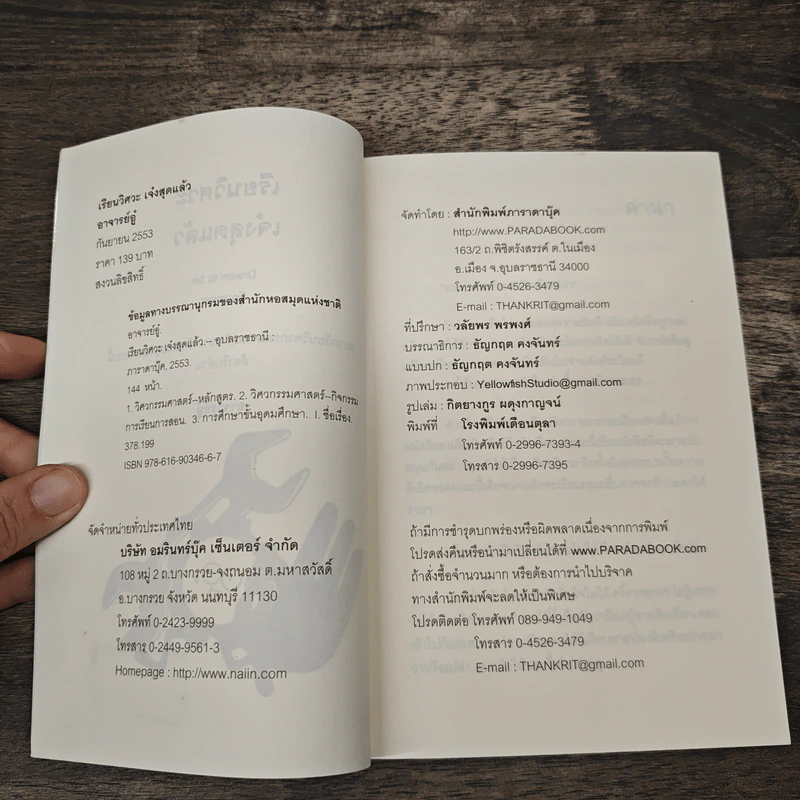 เรียนวิศวะ เจ๋งสุดแล้ว
อาจารย์อู๋
กันยายน 2553
ราคา 139 บาท
สงวนลิขสิทธิ์
ข้อมูลทางบรรณานุกรมของสำนักหอสมุดแห่งชาติ
อาจารย์อู๋.
เรียนวิศวะ เจ๋งสุดแล้ว.-- อุบลราชธานี :
ภาราดาบุ๊ค, 2553.
144 หน้า.
1. วิศวกรรมศาสตร์--หลักสูตร. 2. วิศวกรรมศาสตร์--กิจกรรม
การเรียนการสอน. 3. การศึกษาขั้นอุดมศึกษา. I. ชื่อเรื่อง.
378.199
ISBN 978-616-90346-6-7
จัดจำหน่ายทั่วประเทศไทย
บริษัท อมรินทร์บุ๊ค เซ็นเตอร์ จำกัด
108 หมู่ 2 ถ.บางกรวย-จงถนอม ต.มหาสวัสดิ์
อ.บางกรวย จังหวัด นนทบุรี 11130
โทรศัพท์ 0-2423-9999
โทรสาร 0-2449-9561-3
Homepage : http://www.naiin.com
จัดทำโดย : สำนักพิมพ์ภาราดาบุ๊ค
http://www.PARADABOOK.com
163/2 ถ.พิชิตรังสรรค์ ต.ในเมือง
อ.เมือง จ.อุบลราชธานี 34000
โทรศัพท์ 0-4526-3479
E-mail : THANKRIT@gmail.com
ที่ปรึกษา : วลัยพร พรพงศ์
บรรณาธิการ : ธัญกฤต คงจันทร์
แบบปก : ธัญกฤต คงจันทร์
ภาพประกอบ : YellowfishStudio@gmail.com
รูปเล่ม : กิตยางกูร ผดุงกาญจน์
พิมพ์ที่ โรงพิมพ์เดือนตุลา
โทรศัพท์ 0-2996-7393-4
โทรสาร 0-2996-7395
ถ้ามีการชำรุดบกพร่องหรือผิดพลาดเนื่องจากการพิมพ์
โปรดส่งคืนหรือนำมาเปลี่ยนได้ที่ www.PARADABOOK.com
ถ้าสั่งซื้อจำนวนมาก หรือต้องการนำไปบริจาค
ทางสำนักพิมพ์จะลดให้เป็นพิเศษ
โปรดติดต่อ โทรศัพท์ 089-949-1049
โทรสาร 0-4526-3479
E-mail : THANKRIT@gmail.com